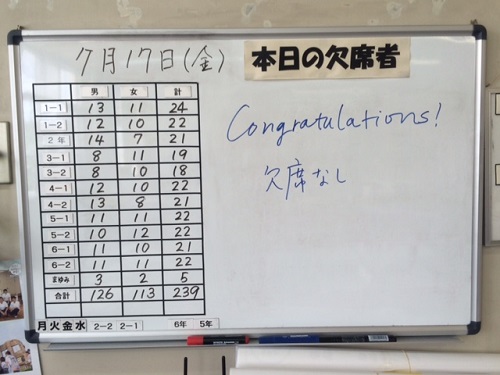 7月17日(金)
本日の欠席者
男 女 計
1-1 13 11 24
1-2 12 10 22
2年 14 7 21
3-1 8 11 19
3-2 8 10 18
4-1 12 10 22
4-2 13 8 21
5-1 11 11 22
5-2 10 12 22
6-1 11 10 21
6-2 11 11 22
まゆみ 3 2 5
合計 126 113 239
Congratulations!
欠席なし
月火金水 2-2 2-1 6年 5年